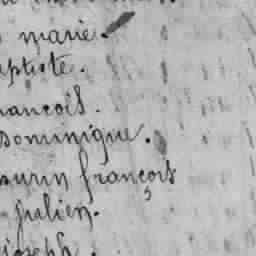 marie.
aptiste.
rancois.
Dominique.
urin françois
julien.
joseph.